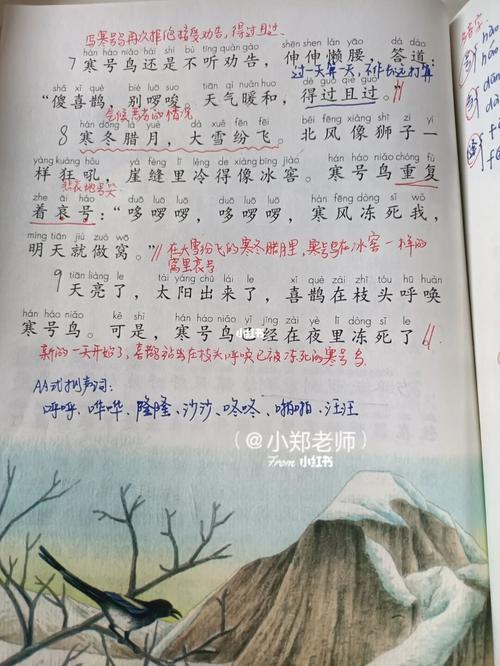 写寒号鸟再次拒绝接受劝告,得过且过.
hán hào niǎo hái shi bù tīng quàn gào shēn shen lǎn yāo dá dào
7 寒号鸟还是不听劝告,伸伸懒腰,答道:
过一天算一天,不作长远打算
shǎ xǐ què bié luō suō tiān qì nuǎn huo dé guò qiě guò
“傻喜鹊,别啰唆,天气暖和,得过且过。”
hán dōng là yuè dà xuě fēn fēi běi fēng xiàng shī zi yí
8 寒冬腊月,大雪纷飞。北风像狮子一
yàng kuáng hǒu yá fèng lǐ lěng de xiàng bīng jiào hán hào niǎo chóng fù
样狂吼,崖缝里冷得像冰窖。寒号鸟重复
zhe āi háo duō luō luō duō luō luō hán fēng dòng sǐ wǒ
着哀号:“哆啰啰,哆啰啰,寒风冻死我,
míng tiān jiù zuò wō
明天就做窝。”
在大雪纷飞的寒冬腊月里,寒号鸟在冰窖一样的
窝里哀号
tiān liàng le tài yáng chū lái le xǐ què zài zhī tóu hū huàn
9 天亮了,太阳出来了,喜鹊在枝头呼唤
hán hào niǎo kě shì hán hào niǎo yǐ jīng zài yè lǐ dòng sǐ le
寒号鸟。可是,寒号鸟已经在夜里冻死了
新的一天开始了,喜鹊站在枝头呼唤已被冻死的寒号鸟.
AA式拟声词:
呼呼、哗哗、隆隆、沙沙、咚咚、啪啪、汪汪
小红书
(@小郑老师)
From 小红书